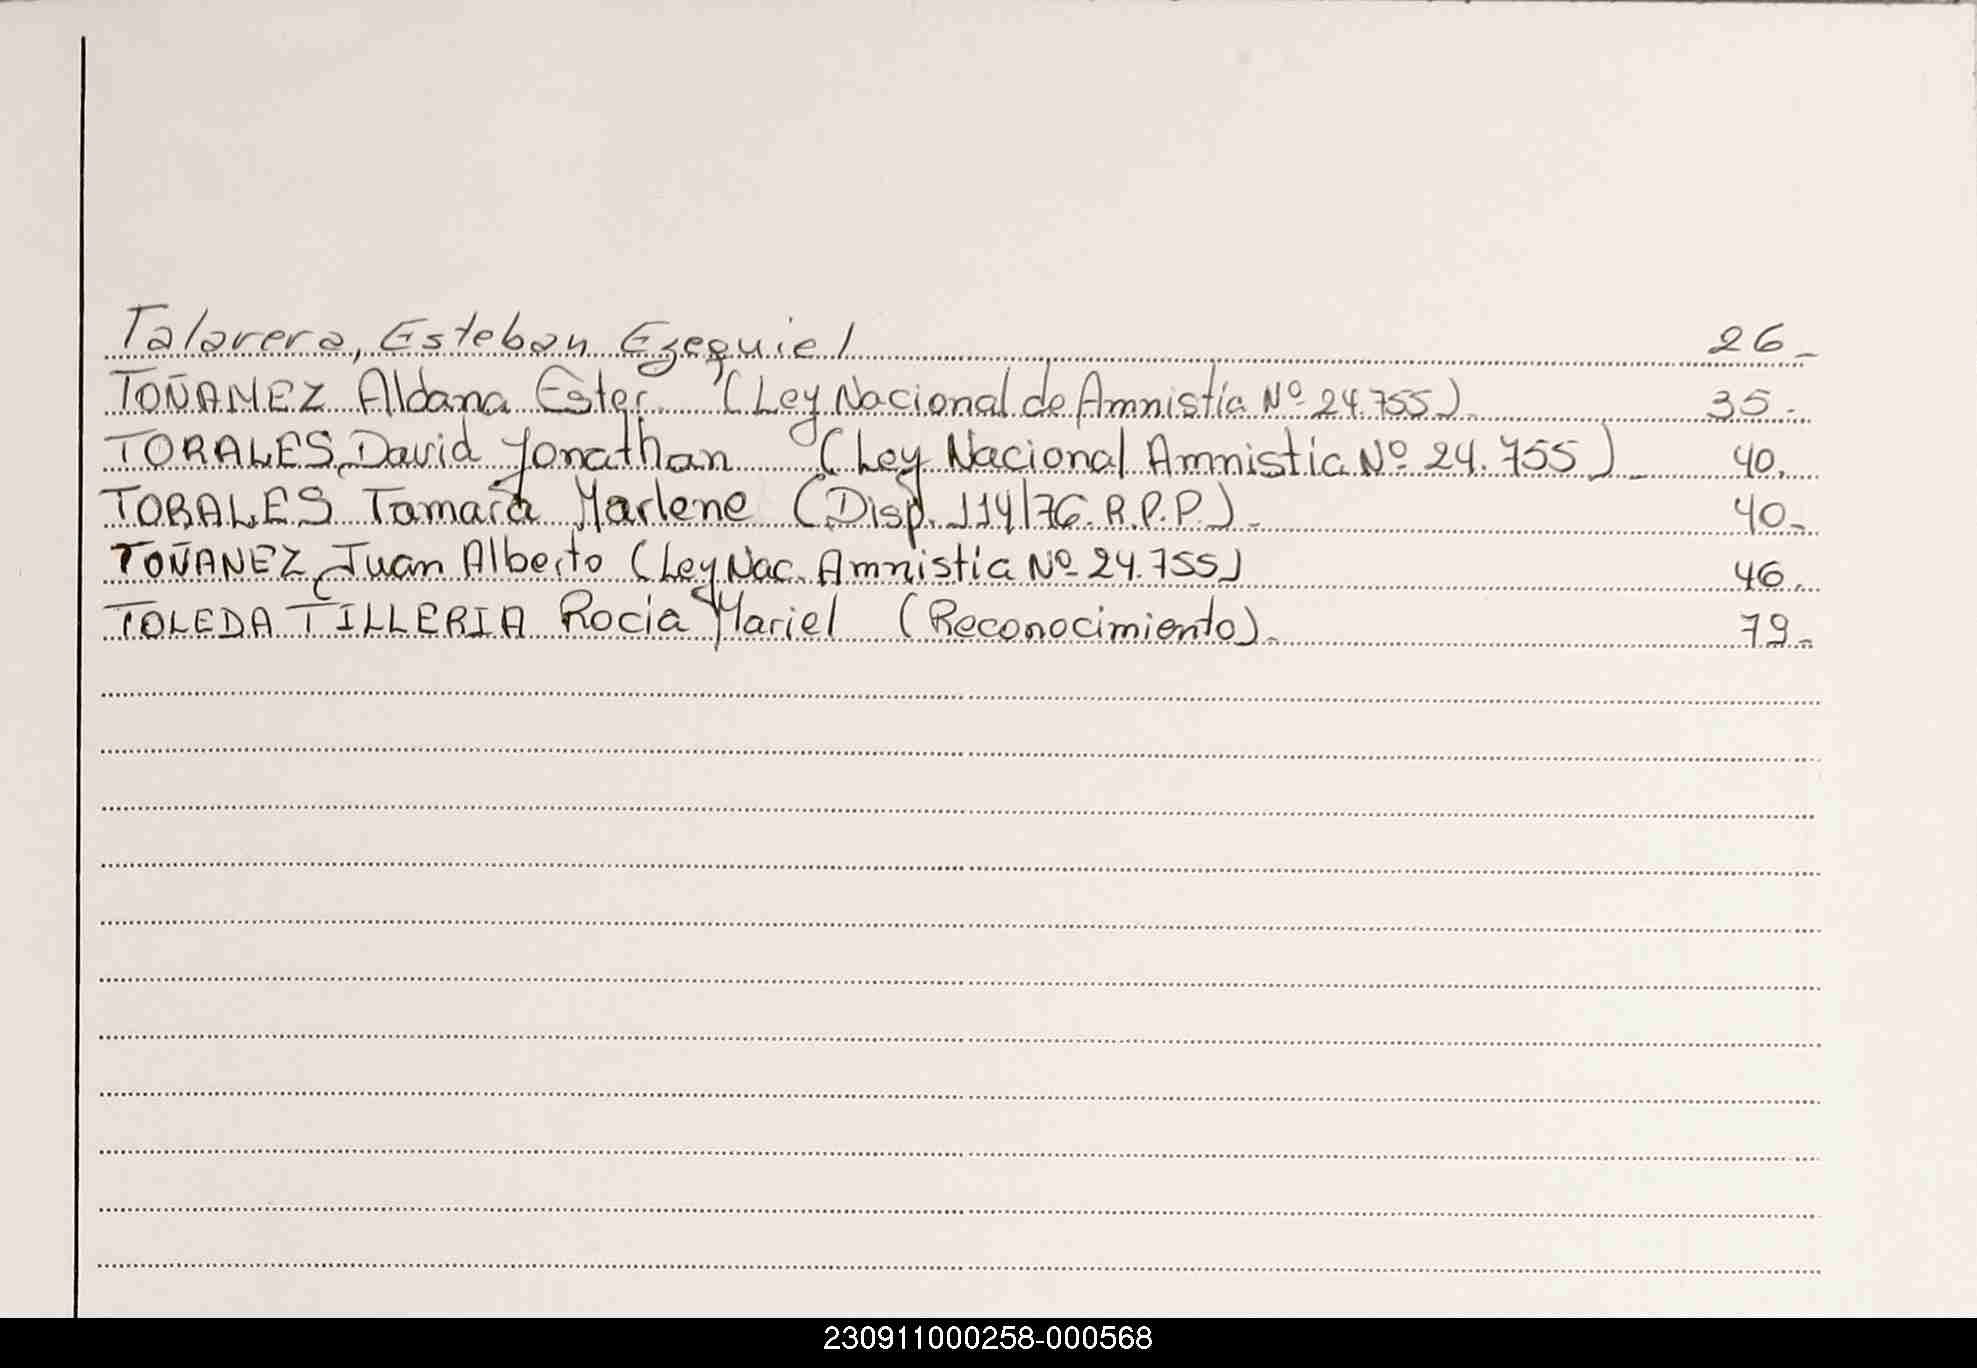 Talavera, Esteban Ezequiel 26-
TOÑANEZ Aldana Ester (Ley Nacional de Amnistía Nº 24.755) 35-
TORALES, David Jonathan (Ley Nacional Amnistía Nº 24.755)- 40.
TORALES Tamara Marlene (Disp. 114/76 R.P.P)- 40-
TOÑANEZ, Juan Alberto (Ley Nac. Amnistía Nº 24.755) 46.
TOLEDA TILLERIA Rocia Mariel (Reconocimiento)- 79-
230911000258-000568